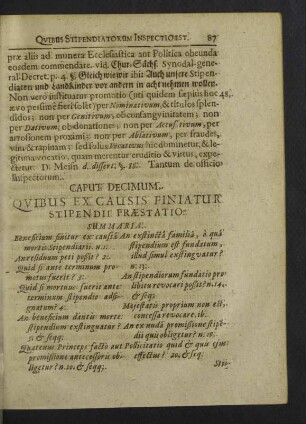 QVIBUS STIPENDIATORUM INSPECTIO EST. 87
præ aliis ad munera Ecclesiastica aut Politica obeunda
eosdem commendare. vid. Chur-Sächs. Synodal-gene-
ral-Decret. p. 4. §. Gleich wie wir ihn Auch unsere Stipen-
diaten und Landkinder vor andern in acht nehmen wollen.
Non verò instituatur promotio (uti quidem sæpiùs hoc 48.
ævo pessimè fieri solet) per Nominativum, & titulos splen-
didos; non per Genitivum, ob consangvinitatem; non
per Dativum; ob donationes; non per Accusativum, per
artificionem proximi; non per Ablativum, per fraudes,
vim & rapinam; sed solus Vocativus hìc dominetur, & le-
gitima vocatio, quam merentur eruditio & virtus, expe-
ctetur. D. Meisn d. dissert. §. 15. Tantum de officio
Inspectorum.
CAPUT DECIMUM.
QVIBUS EX CAUSIS FINIATUR
STIPENDII PRÆSTATIO.
SUMMARIA.
Beneficium finitur ex causâ
mortis Stipendiarii. n. 1.
An residuum peti possit? 2.
Quid si ante terminum pro-
motus fuerit? 3.
Quid si mortuus fuerit ante
terminum stipendio assi-
gnatum? 4.
An beneficium dantis morte
stipendium exstinguatur?
5. & seqq;
Quatenus Princeps facto aut
promissione antecessoris ob-
ligetur? n. 10. & seqq;
An exstinctâ familiâ, à quâ
stipendium est fundatum,
illud simul exstingvatur?
n. 13.
An stipendiorum fundatio pro
libitu revocari possit? n. 14.
& seq;
Majestatis proprium non est,
concessa revocare. ib.
An ex nudâ promissione stipen-
dii quis obligetur? n. 19.
Pollicitatio quid & quis ejus
effectus? 20. & seq;
Sti-